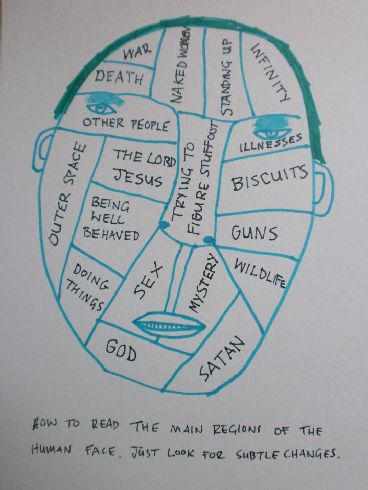 WAR
DEATH
NAKED WOMEN
STANDING UP
INFINITY
OTHER PEOPLE
ILLNESSES
OUTER SPACE
THE LORD
JESUS
TRYING TO
FIGURE STUFF OUT
BISCUITS
BEING
WELL
BEHAVED
GUNS
DOING
THINGS
SEX
MYSTERY
WILDLIFE
GOD
SATAN
HOW TO READ THE MAIN REGIONS OF THE
HUMAN FACE. JUST LOOK FOR SUBTLE CHANGES.